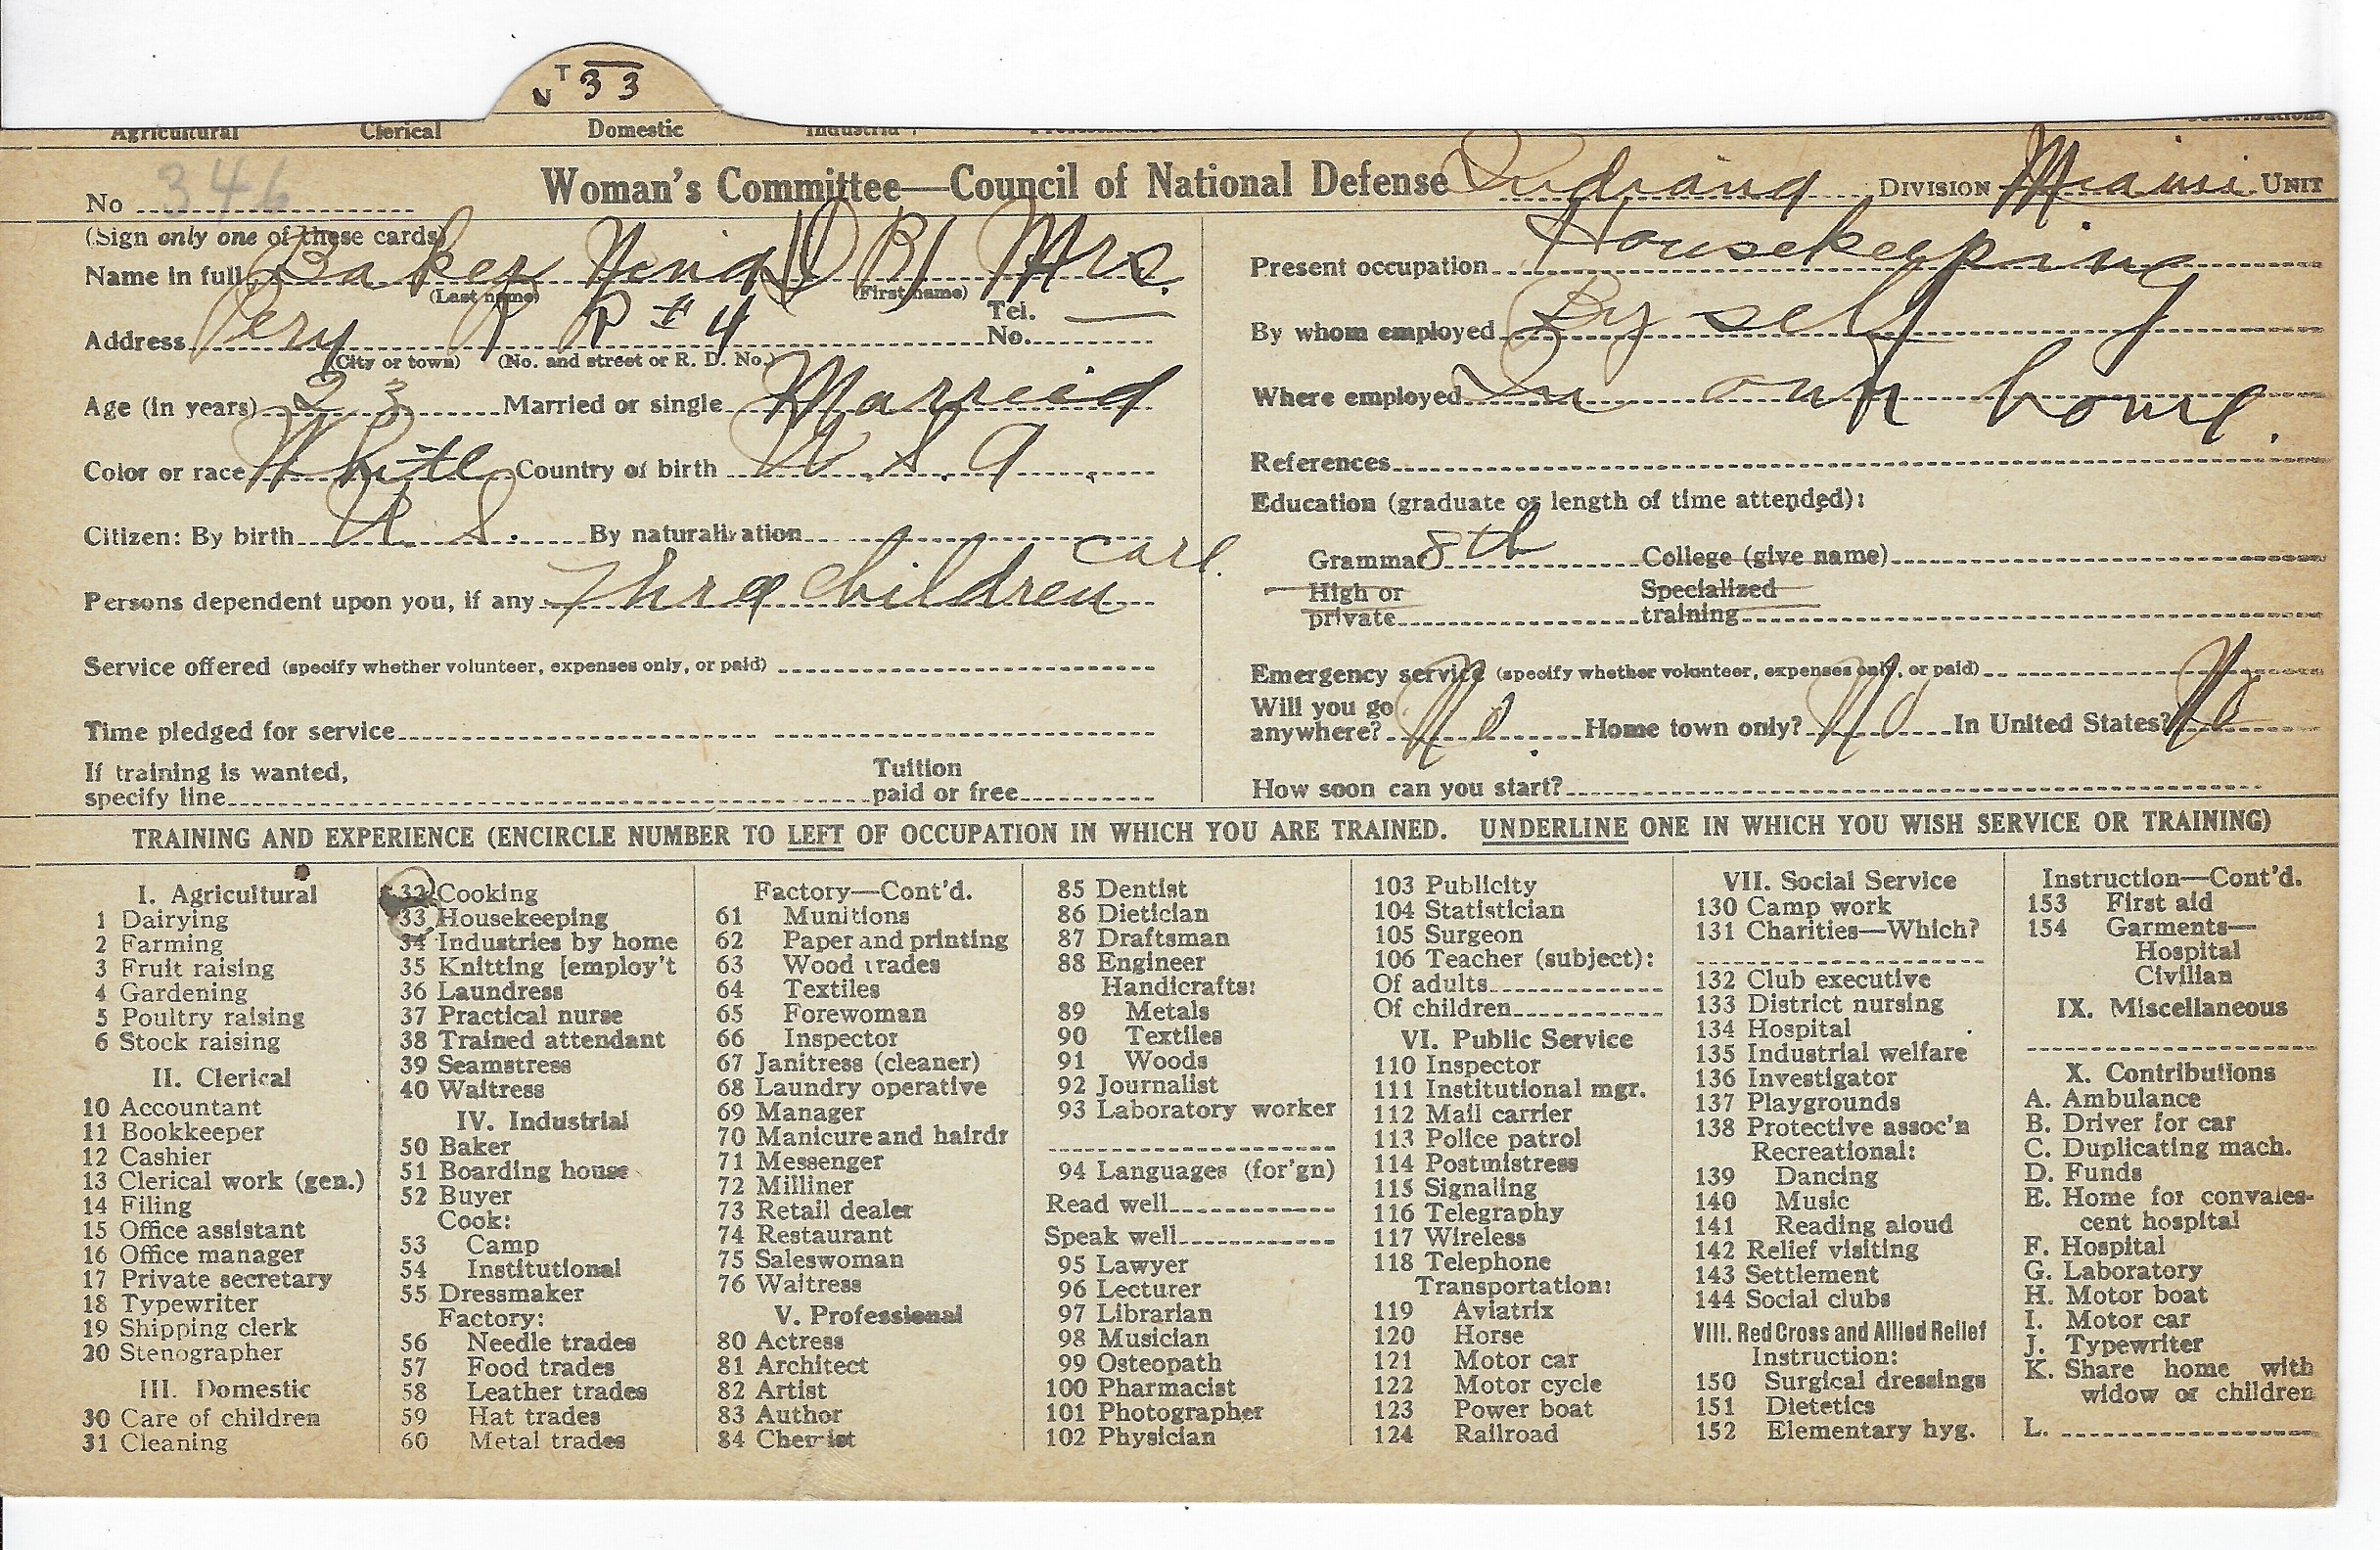 T 33
Agricultural Clerical Domestic
No 346 Woman's Committee—Council of National Defense Indiana DIVISION Miami UNIT
(Sign only one of these cards)
Name in full Baker Mrs.
(Last name) (First name)
Address Peru R R #4 Tel. No. —
(City or town) (No. and street or R. D. No.)
Age (in years) 23 Married or single Married
Color or race White Country of birth U. S. A.
Citizen: By birth U. S. By naturalization
Persons dependent upon you, if any Three Children Carl.
Service offered (specify whether volunteer, expenses only, or paid)
Time pledged for service
If training is wanted, specify line Tuition paid or free
Present occupation Housekeeping
By whom employed By self
Where employed In own home.
References
Education (graduate or length of time attended):
Grammar 8th College (give name)
High or private Specialized training
Emergency service (specify whether volunteer, expenses only, or paid)
Will you go anywhere? No. Home town only? No In United States? No
How soon can you start?
TRAINING AND EXPERIENCE (ENCIRCLE NUMBER TO LEFT OF OCCUPATION IN WHICH YOU ARE TRAINED. UNDERLINE ONE IN WHICH YOU WISH SERVICE OR TRAINING)
I. Agricultural
1 Dairying
2 Farming
3 Fruit raising
4 Gardening
5 Poultry raising
6 Stock raising
II. Clerical
10 Accountant
11 Bookkeeper
12 Cashier
13 Clerical work (gen.)
14 Filing
15 Office assistant
16 Office manager
17 Private secretary
18 Typewriter
19 Shipping clerk
20 Stenographer
III. Domestic
30 Care of children
31 Cleaning
32 Cooking
33 Housekeeping
34 Industries by home
35 Knitting [employ't
36 Laundress
37 Practical nurse
38 Trained attendant
39 Seamstress
40 Waitress
IV. Industrial
50 Baker
51 Boarding house
52 Buyer
Cook:
53 Camp
54 Institutional
55 Dressmaker
Factory:
56 Needle trades
57 Food trades
58 Leather trades
59 Hat trades
60 Metal trades
Factory—Cont'd.
61 Munitions
62 Paper and printing
63 Wood trades
64 Textiles
65 Forewoman
66 Inspector
67 Janitress (cleaner)
68 Laundry operative
69 Manager
70 Manicure and hairdr
71 Messenger
72 Milliner
73 Retail dealer
74 Restaurant
75 Saleswoman
76 Waitress
V. Professional
80 Actress
81 Architect
82 Artist
83 Author
84 Chemist
85 Dentist
86 Dietician
87 Draftsman
88 Engineer
Handicrafts:
89 Metals
90 Textiles
91 Woods
92 Journalist
93 Laboratory worker
94 Languages (for'gn)
Read well
Speak well
95 Lawyer
96 Lecturer
97 Librarian
98 Musician
99 Osteopath
100 Pharmacist
101 Photographer
102 Physician
103 Publicity
104 Statistician
105 Surgeon
106 Teacher (subject):
Of adults
Of children
VI. Public Service
110 Inspector
111 Institutional mgr.
112 Mail carrier
113 Police patrol
114 Postmistress
115 Signaling
116 Telegraphy
117 Wireless
118 Telephone
Transportation:
119 Aviatrix
120 Horse
121 Motor car
122 Motor cycle
123 Power boat
124 Railroad
VII. Social Service
130 Camp work
131 Charities—Which?
132 Club executive
133 District nursing
134 Hospital
135 Industrial welfare
136 Investigator
137 Playgrounds
138 Protective assoc'n
Recreational:
139 Dancing
140 Music
141 Reading aloud
142 Relief visiting
143 Settlement
144 Social clubs
VIII. Red Cross and Allied Relief
Instruction:
150 Surgical dressings
151 Dietetics
152 Elementary hyg.
Instruction—Cont'd.
153 First aid
154 Garments—
Hospital
Civilian
IX. Miscellaneous
X. Contributions
A. Ambulance
B. Driver for car
C. Duplicating mach.
D. Funds
E. Home for convales-
cent hospital
F. Hospital
G. Laboratory
H. Motor boat
I. Motor car
J. Typewriter
K. Share home with
widow or children
L.